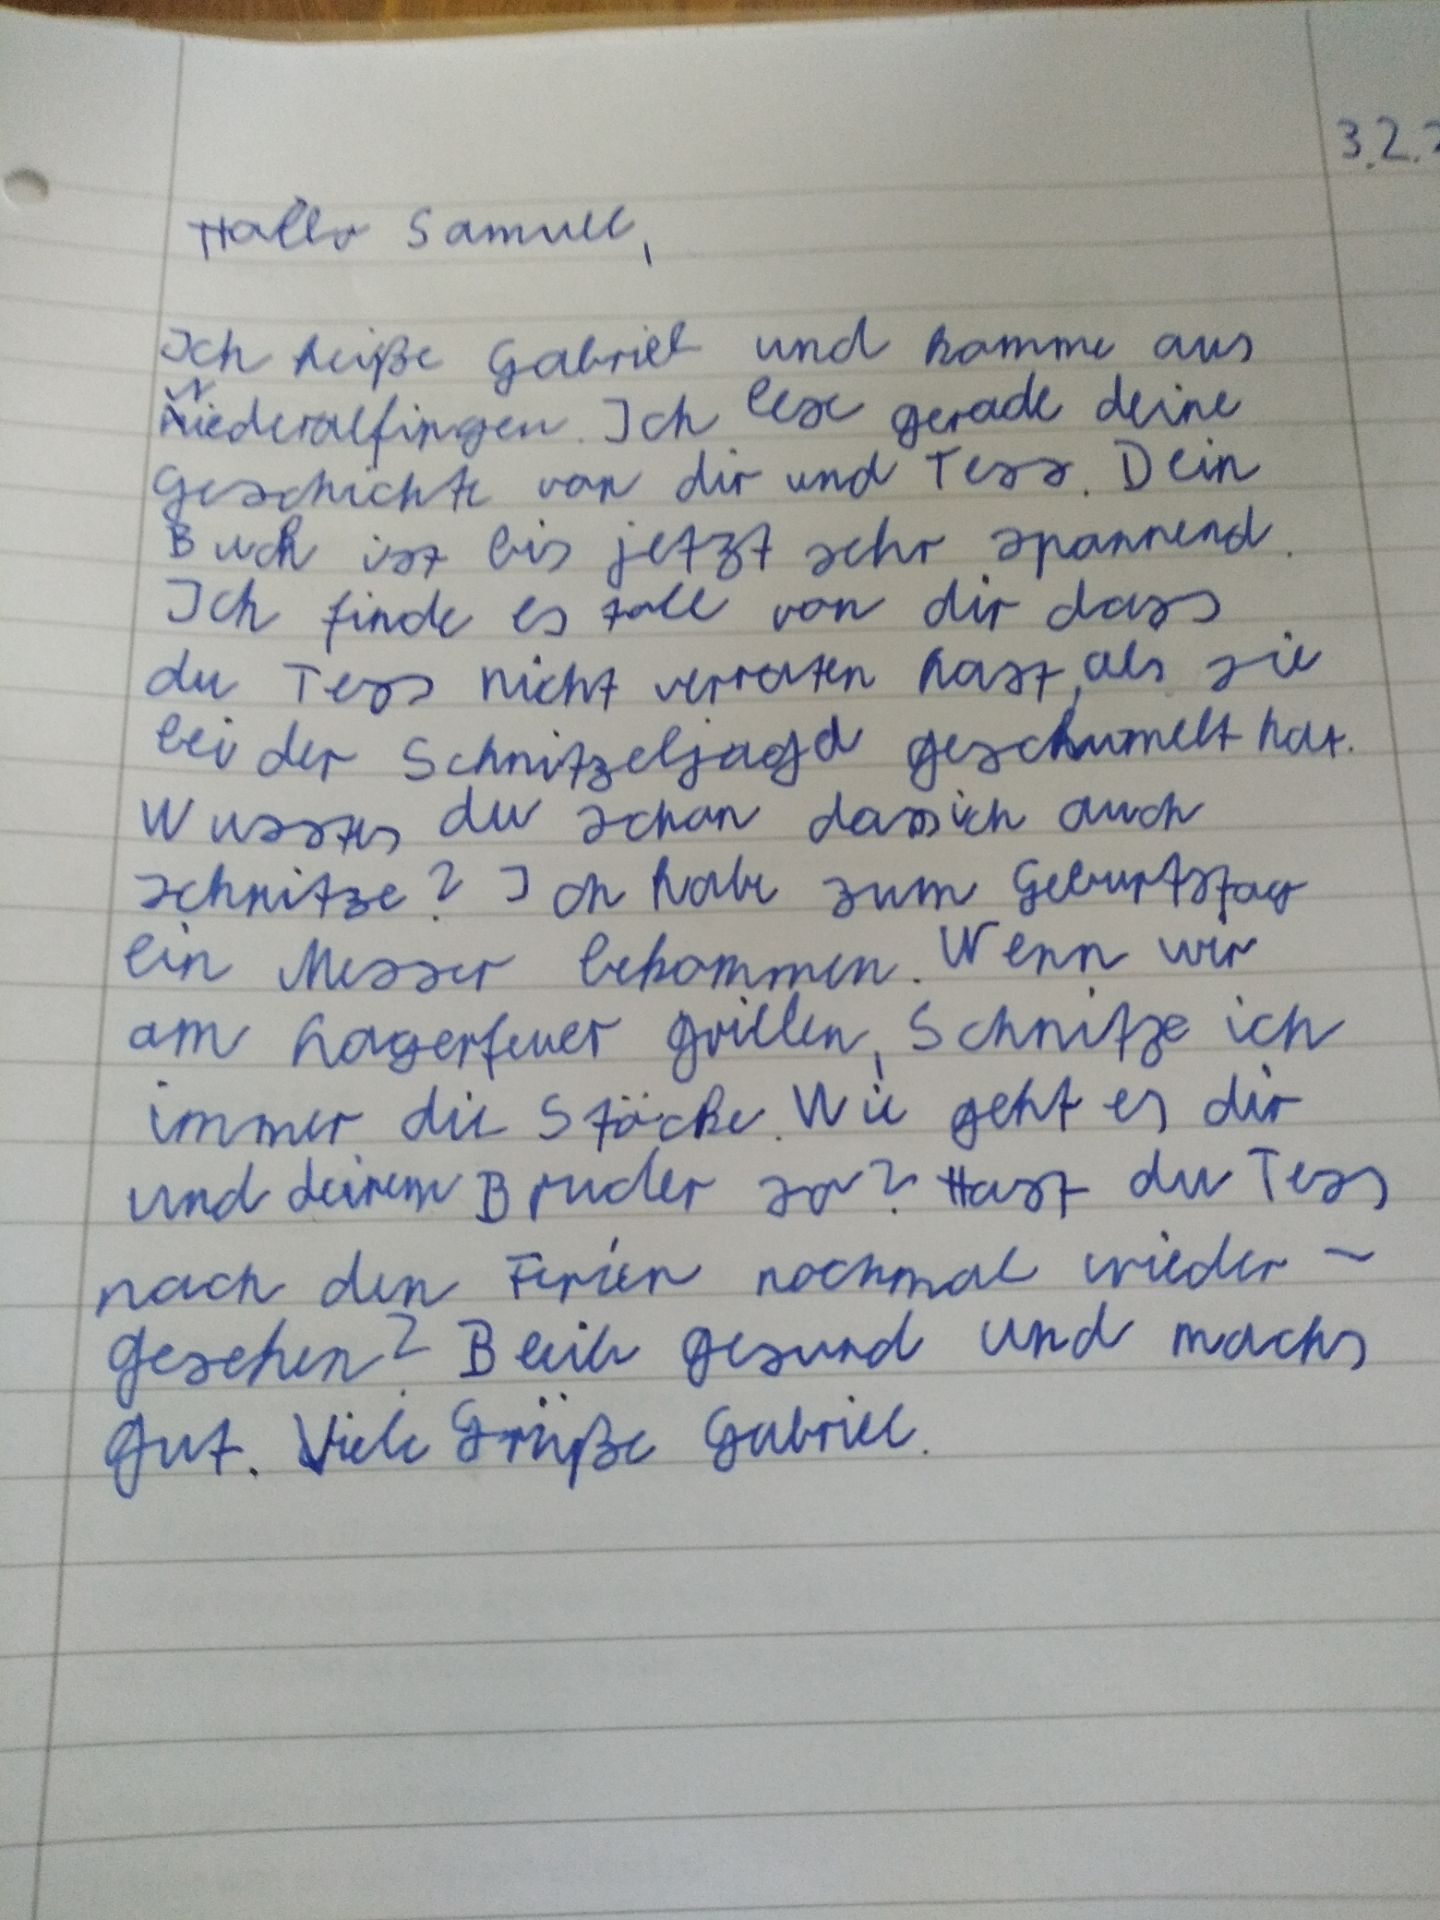 3.2.2
Hallo Samuel,
Ich heiße Gabriel und komme aus
Niederalfingen. Ich lese gerade deine
Geschichte von dir und Tess. Dein
Buch ist bis jetzt sehr spannend.
Ich finde es toll von dir dass
du Tess nicht verraten hast, als sie
bei der Schnitzeljagd geschumelt hat.
Wusstes du schon dass ich auch
schnitze? Ich habe zum Geburtstag
ein Messer bekommen. Wenn wir
am Lagerfeuer grillen, Schnitze ich
immer die Stöcke. Wie geht es dir
und deinem Bruder so? Hast du Tess
nach den Ferien nochmal wieder-
gesehen? Bleib gesund und machs
gut. Viele Grüße Gabriel.